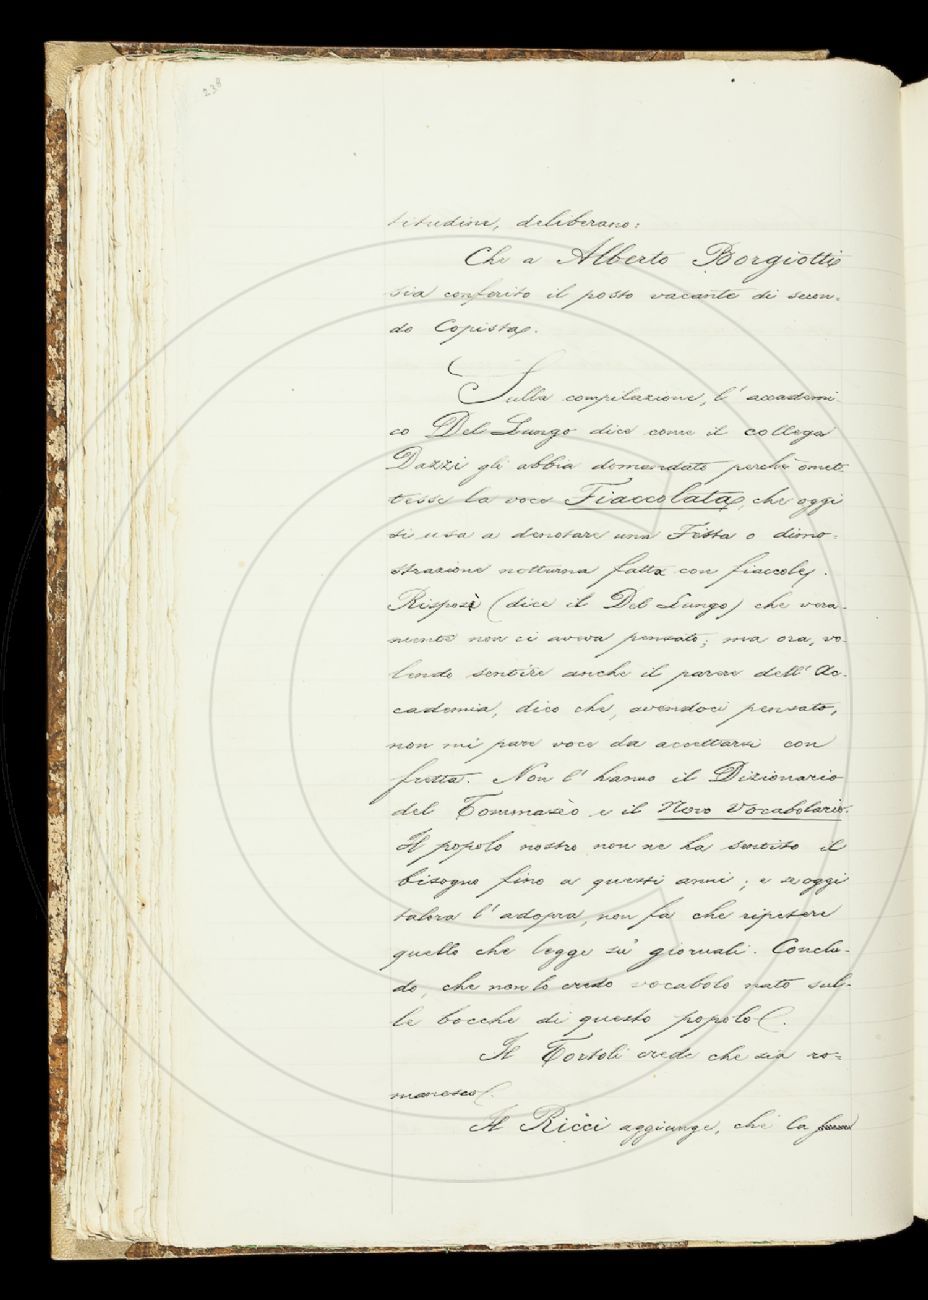 238
titudine, deliberano:
Che a Alberto Borgiotti
sia conferito il posto vacante di secon-
do Copista.
Sulla compilazione, l'accademi-
co Del Lungo dice come il collega
Dazzi gli abbia domandato perchè omet-
tesse la voce Fiaccolata, che oggi
si usa a denotare una Festa o dimo-
strazione notturna fatta con fiaccole.
Risposi (dice il Del Lungo) che vera-
mente non ci aveva pensato; ma ora, vo-
lendo sentire anche il parere dell'Ac-
cademia, dico che, avendoci pensato,
non mi pare voce da accettarsi con
fretta. Non l'hanno il Dizionario
del Tommasèo e il Novo Vocabolario.
Il popolo nostro non ne ha sentito il
bisogno fino a questi anni; e se oggi
talora l'adopra, non fa che ripetere
quello che legge su' giornali. Conclu-
do, che non lo credo vocabolo nato sul-
le bocche di questo popolo.
Il Tortoli crede che sia ro-
manesco.
Il Ricci aggiunge, che la